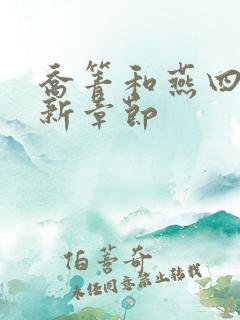 乔箐和燕四
新章节
伯荖奇
未经同意禁止转载